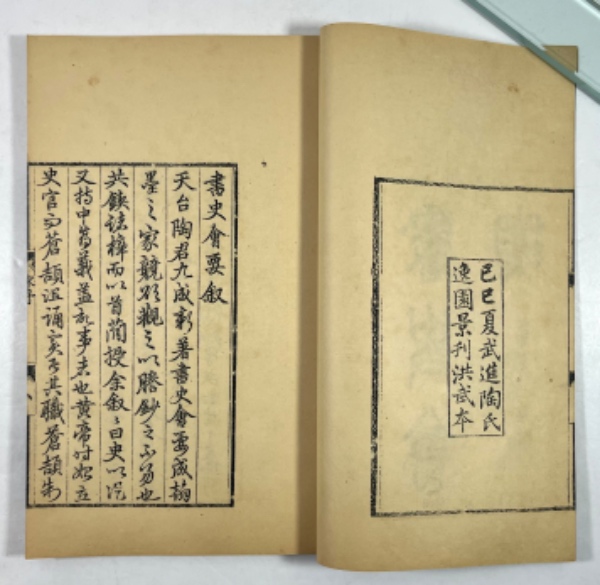 己巳夏武進陶氏
逸園景刊洪武本
書史會要叙
天台陶君九成新著書史會要成翰
墨之家競欲觀之以謄鈔之不易也
共鋟諸梓而以首簡授余叙叙曰史以從
又持中為義蓋記事者也黄帝时始立
史官而蒼頡沮誦實居其職蒼頡制